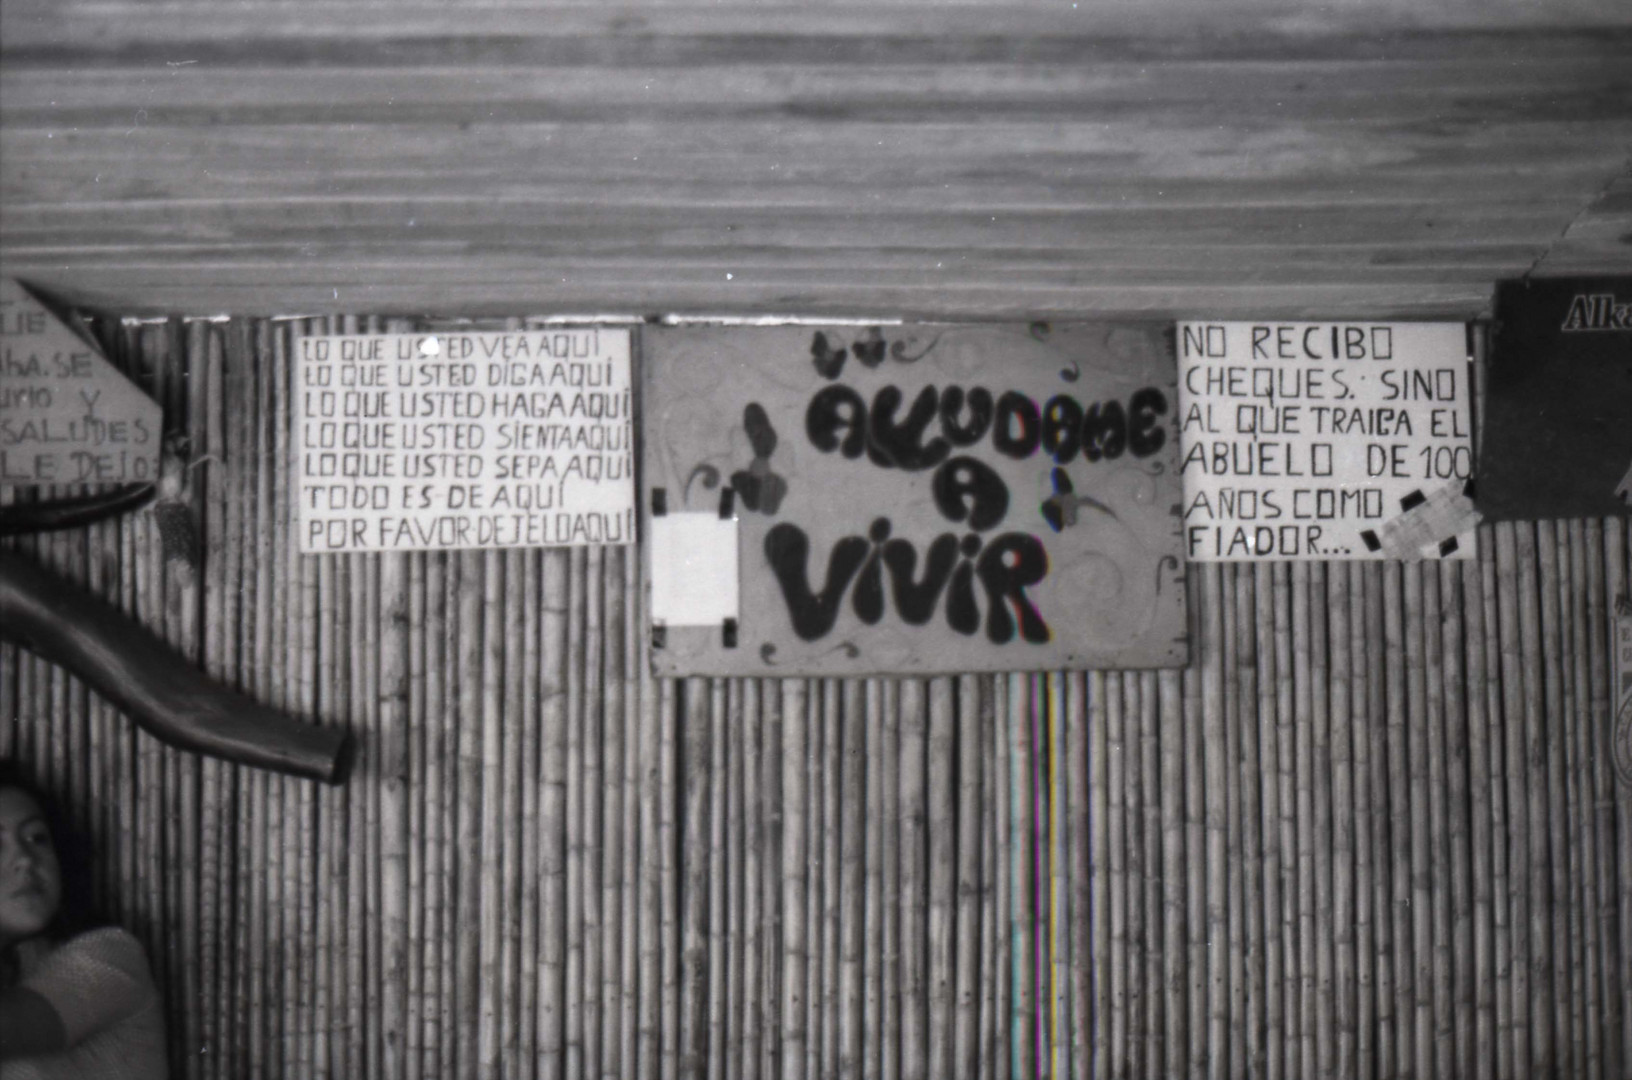 SE
Y
SALUDES
LE DEJO
LO QUE USTED VEA AQUÍ
LO QUE USTED DIGA AQUÍ
LO QUE USTED HAGA AQUÍ
LO QUE USTED SIENTA AQUÍ
LO QUE USTED SEPA AQUÍ
TODO ES DE AQUÍ
POR FAVOR DEJELO AQUÍ
AYUDAME
A
ViViR
NO RECIBO
CHEQUES. SINO
AL QUE TRAIGA EL
ABUELO DE 100
AÑOS COMO
FIADOR...
Alka